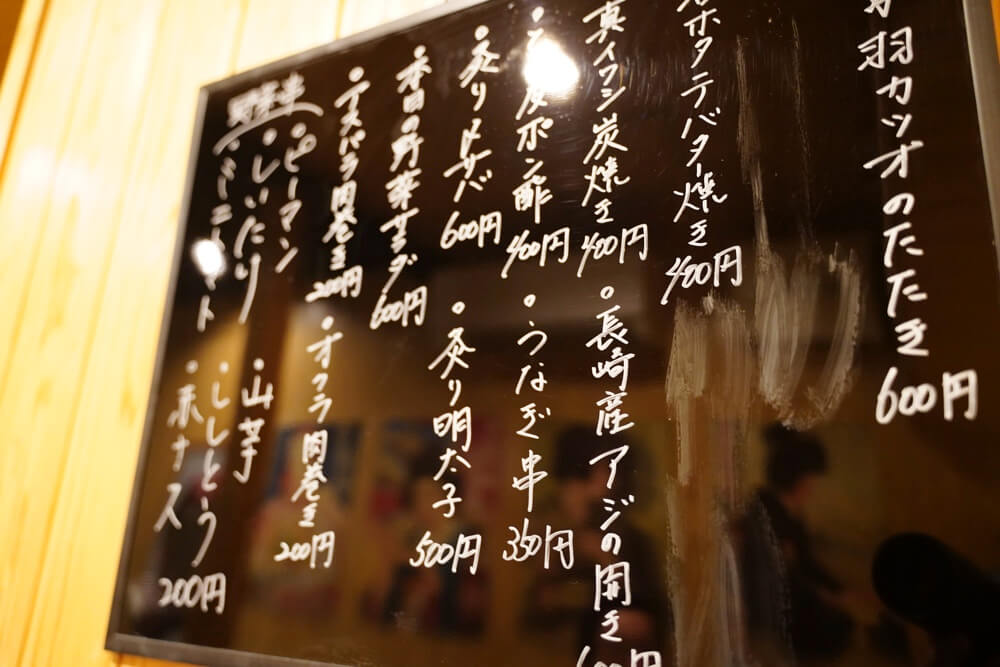 羽カツオのたたき 600円
ホタテバター焼き 400円
真イワシ炭焼き 400円
・長崎産アジの開き
600円
ポン酢 400円
・うなぎ串 350円
炙りトサバ 600円
・炙り明太子 500円
・本日の野菜サラダ 600円
・アスパラ肉巻き 200円
・オクラ肉巻き 200円
野菜串
・ピーマン
・しいたけ
・ミニトマト
・山芋
・ししとう
・赤ナス
200円